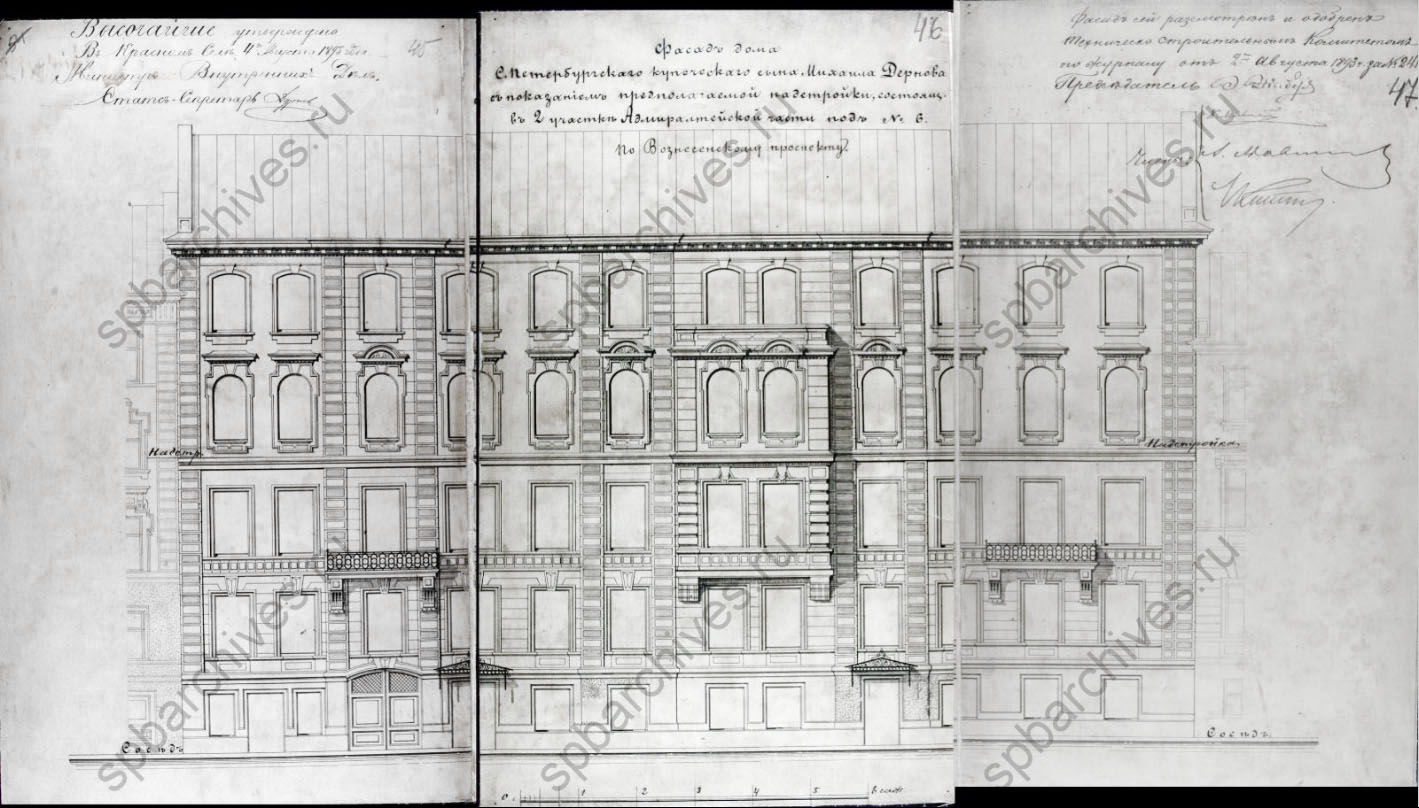 Высочайше утверждено
Въ Красномъ Селѣ, 4го Августа 1893 года.
45
Министръ Внутреннихъ Дѣлъ,
Статсъ-Секретарь
46
Фасадъ дома
С. Петербургскаго купеческаго сына Михаила Дернова
съ показаніемъ предполагаемой надстройки, состоящ.
въ 2 участкѣ Адмиралтейской части подъ № 6.
По Вознесенскому проспекту.
Фасадъ сей разсмотрѣнъ и одобренъ
Техническо-строительнымъ Комитетомъ
по журналу отъ Августа 1893 г. за №
Предсѣдатель
47
Надстр.
Надстройка.
Сосѣдъ
Сосѣдъ.
0. 1 2 3 4 5 6 саж.
spbarchives.ru
spbarchives.ru
spbarchives.ru
spbarchives.ru
spbarchives.ru
spbarchives.ru